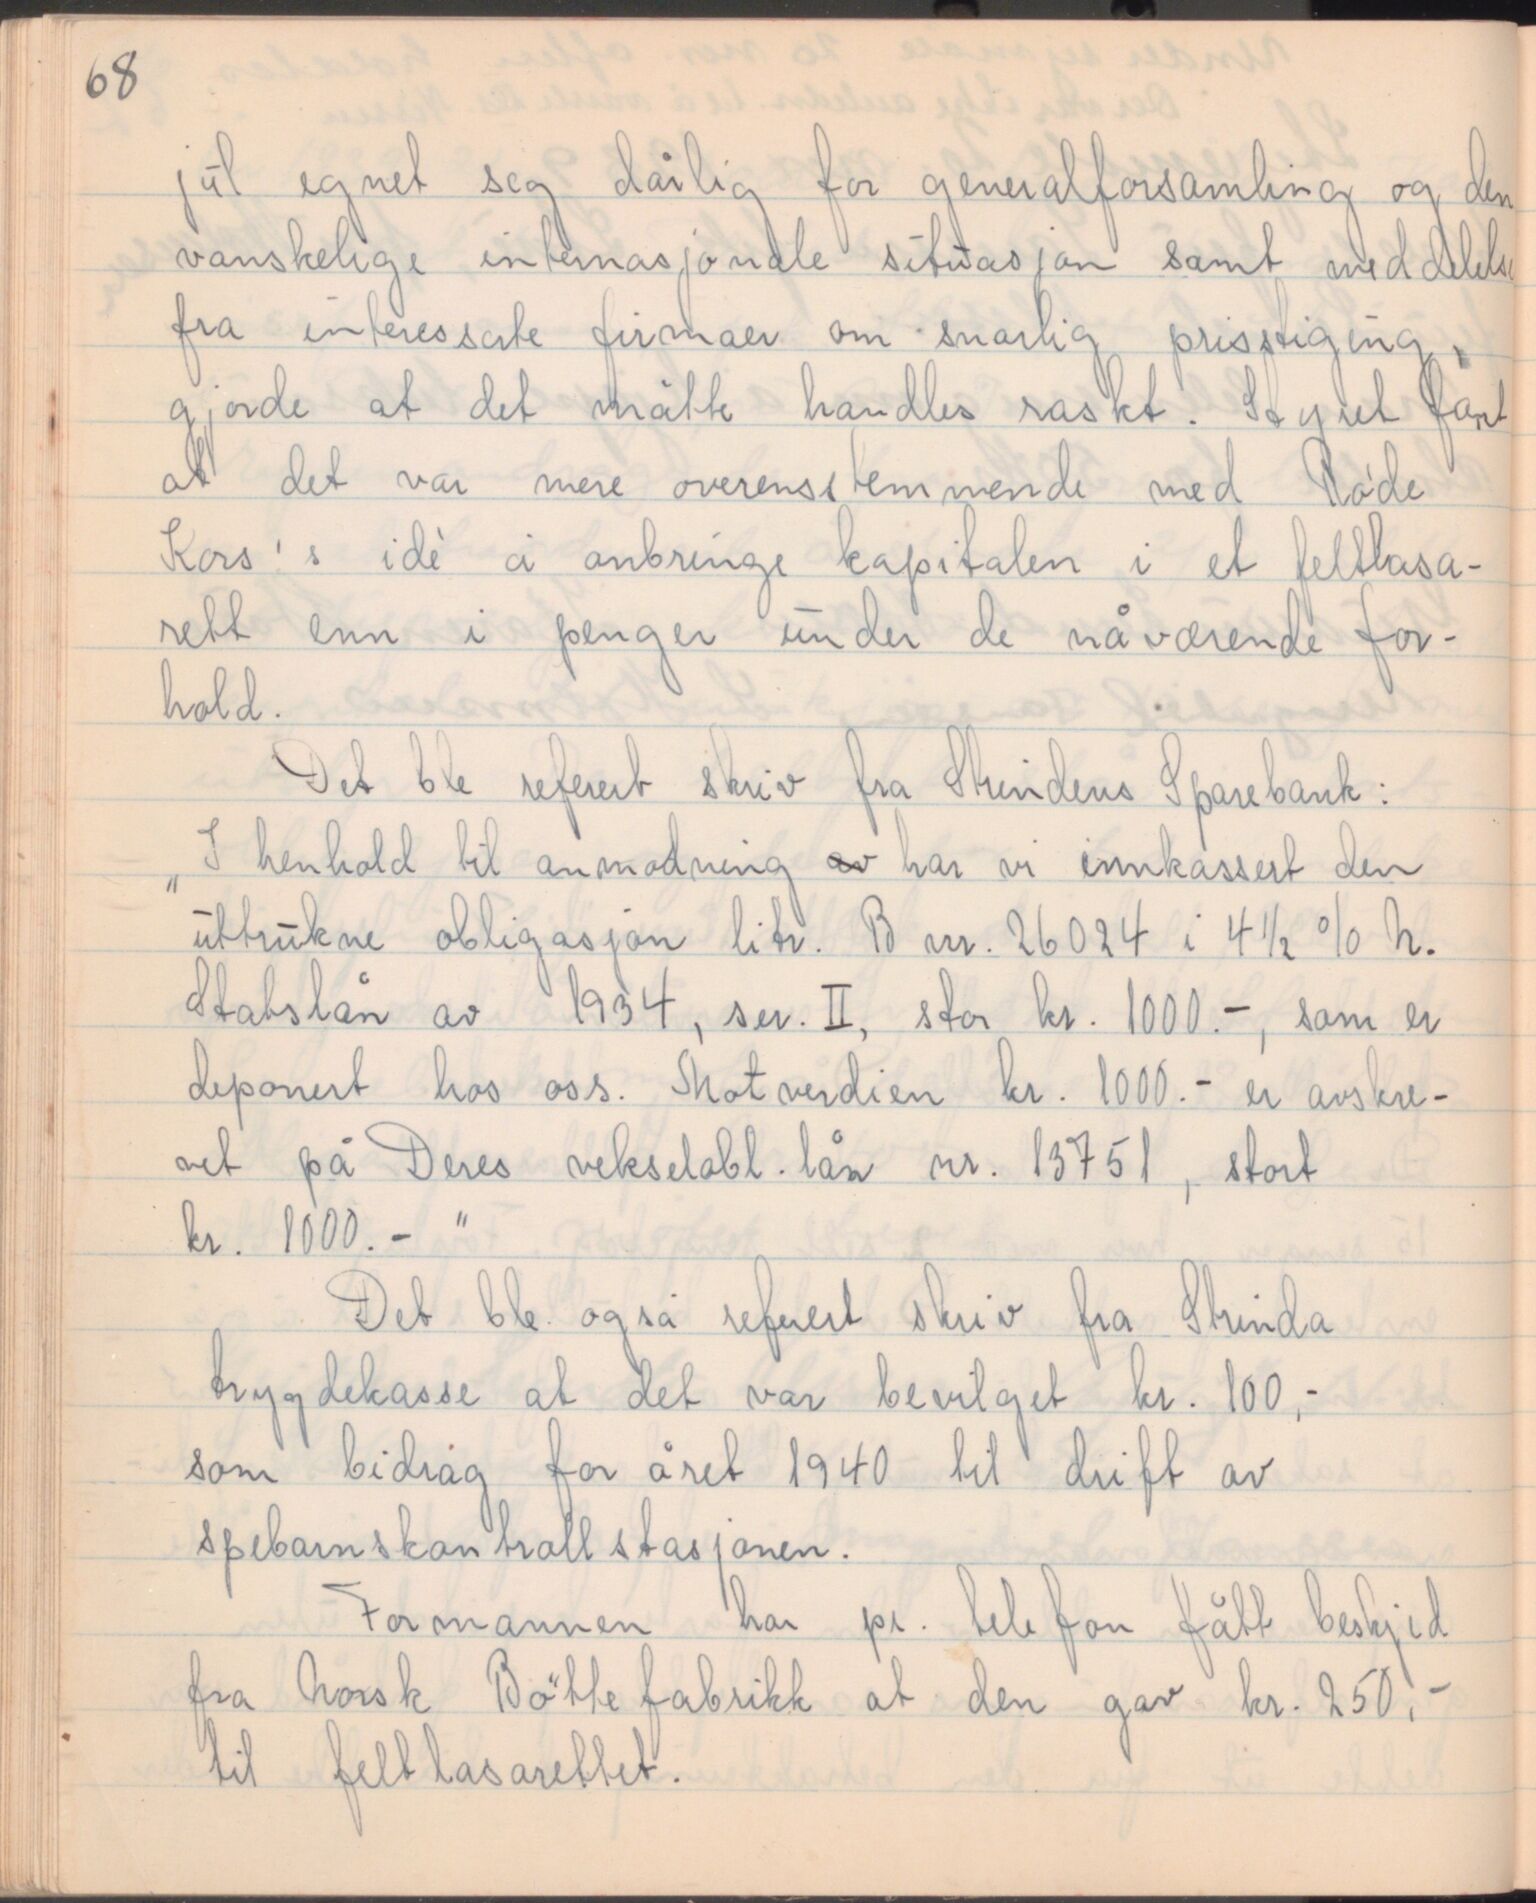 68
jul egnet seg dårlig for generalforsamling og den
vanskelige internasjonale situasjon samt meddelelse
fra interesserte firmaer om snarlig prisstigning,
gjorde at det måtte handles raskt. Styret fant
at det var mere overensstemmende med Röde
Kors's idè å anbringe kapitalen i et feltlasa-
rett enn i penger under de nåværende for-
hold.
Det ble referert skriv fra Strindens Sparebank:
„I henhold til anmodning av har vi innkassert den
uttrukne obligasjon litr. B nr. 26024 i 4½ % N.
Statslån av 1934, ser. II, stor kr. 1000.-, som er
deponert hos oss. Motverdien kr. 1000.- er avskre-
vet på Deres vekselobl. lån nr. 13751, stort
kr. 1000.- "
Det ble også referert skriv fra Strinda
trygdekasse at det var bevilget kr. 100,-
som bidrag for året 1940 til drift av
spebarnskontrollstasjonen.
Formannen har pr. telefon fått beskjed
fra Norsk Böttefabrikk at den gav kr. 250,-
til feltlasarettet.